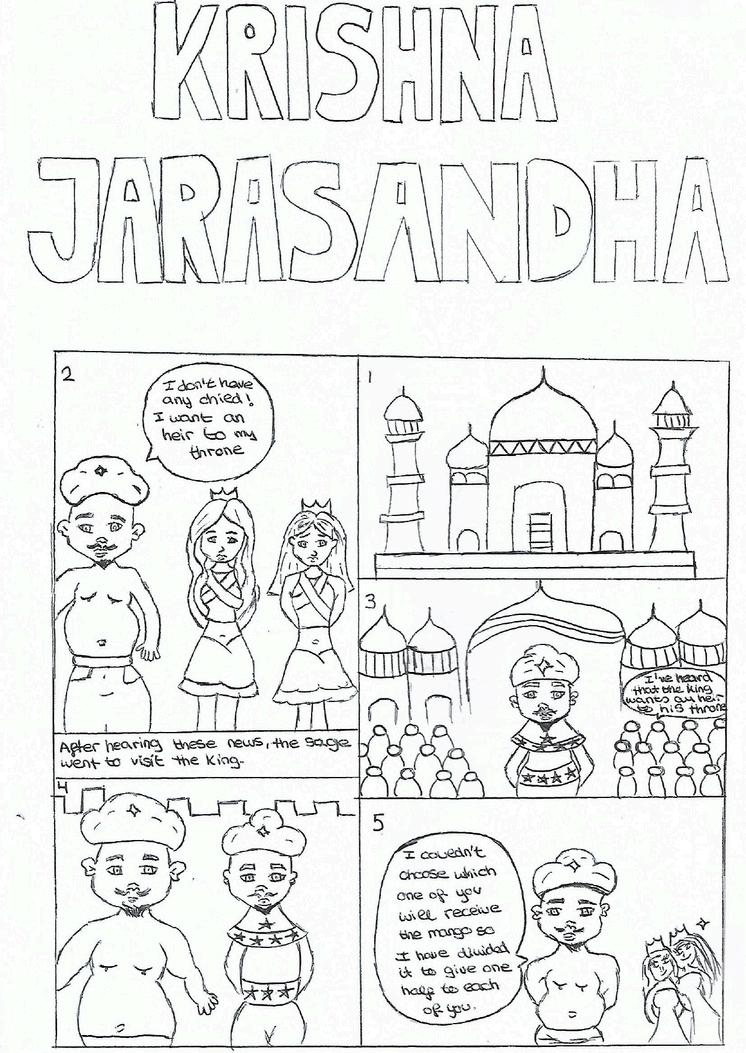 KRISHNA
JARASANDHA
2
I don't have
any child!
I want an
heir to my
throne
After hearing these news, the sage
went to visit the King.
1
3
I've heard
that the king
wants an heir
to his throne
4
5
I couldn't
choose which
one of you
will receive
the mango so
I have divided
it to give one
half to each
of you.